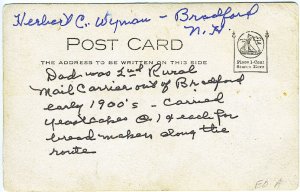 Herbert C. Wyman - Bradford
N.H
POST CARD
THE ADDRESS TO BE WRITTEN ON THIS SIDE
Place 1-Cent
Stamp Here
Dad was 2nd Rural
Mail Carrier out of Bradford
early 1900's - Carried
yeast cakes @ 1¢ each for
bread makers along the
route